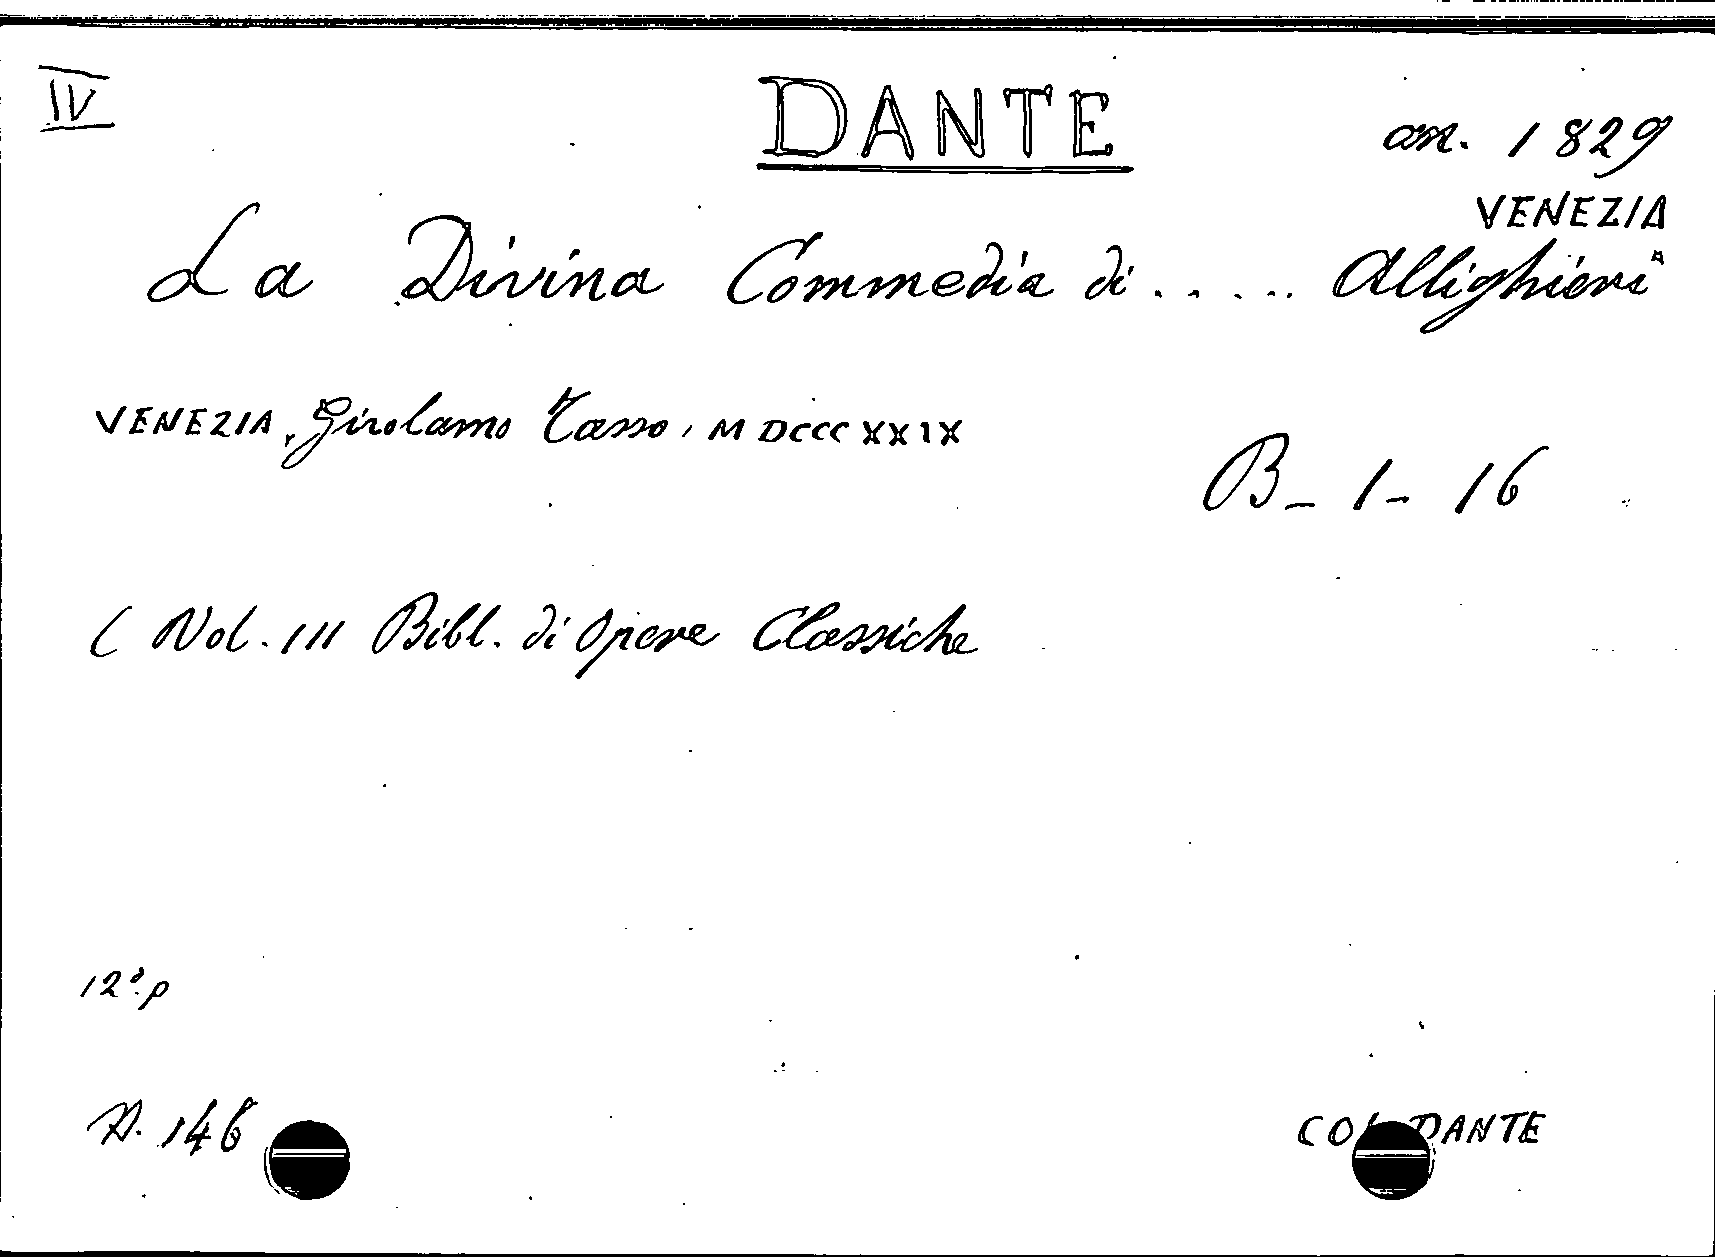 IV
DANTE
an. 1829
VENEZIA
La Divina Commedia di ..... Allighieri
VENEZIA, Girolamo Tasso, MDCCCXXIX
B - 1 - 16
( Vol. III Bibl. di Opere Classiche
12° p
A. 146
COL DANTE